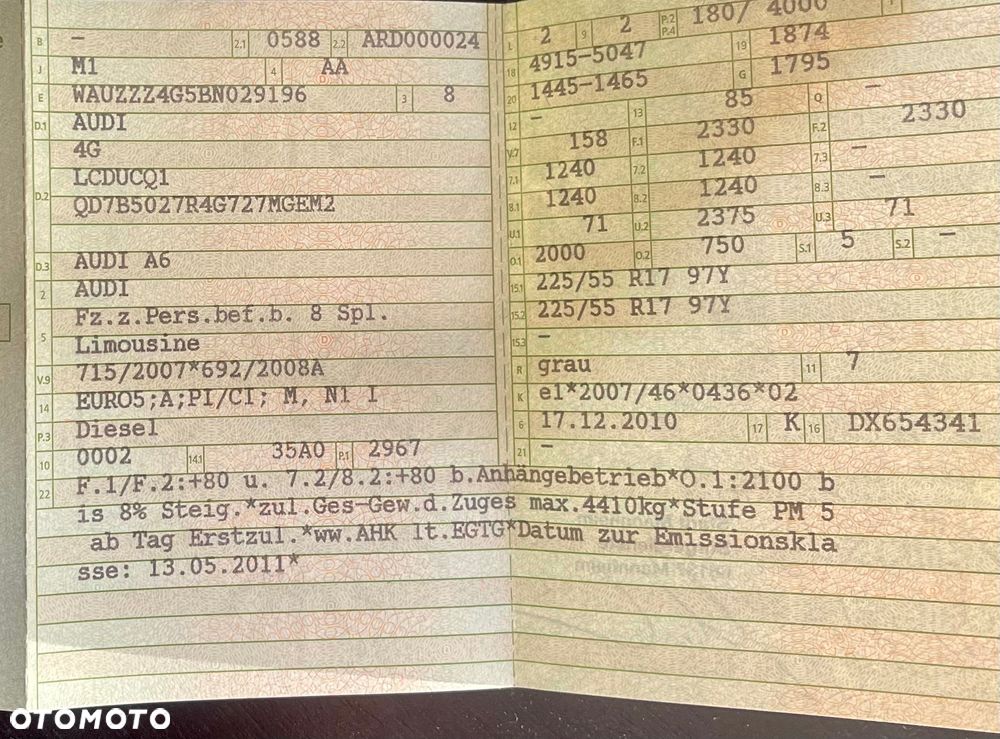 B - 2.1 0588 2.2 ARD000024
J M1 4 AA
E WAUZZZ4G5BN029196 3 8
D.1 AUDI
4G
D.2 LCDUCQ1
QD7B5027R4G727MGEM2
D.3 AUDI A6
2 AUDI
5 Fz.z.Pers.bef.b. 8 Spl.
Limousine
V.9 715/2007*692/2008A
14 EURO5;A;PI/CI; M, N1 I
P.3 Diesel
10 0002 14.1 35A0 P.1 2967
L 2 9 2 P.2 P.4 180/ 4000
18 4915-5047 19 1874
20 1445-1465 G 1795
12 - 13 85 Q -
V.7 158 F.1 2330 F.2 2330
7.1 1240 7.2 1240 7.3 -
8.1 1240 8.2 1240 8.3 -
U.1 71 U.2 2375 U.3 71
O.1 2000 O.2 750 S.1 5 S.2 -
15.1 225/55 R17 97Y
15.2 225/55 R17 97Y
15.3 -
R grau 11 7
K e1*2007/46*0436*02
6 17.12.2010 17 K 16 DX654341
21 -
22 F.1/F.2:+80 u. 7.2/8.2:+80 b.Anhängebetrieb*O.1:2100 b
is 8% Steig.*zul.Ges-Gew.d.Zuges max.4410kg*Stufe PM 5
ab Tag Erstzul.*ww.AHK lt.EGTG*Datum zur Emissionskla
sse: 13.05.2011*
OTOMOTO